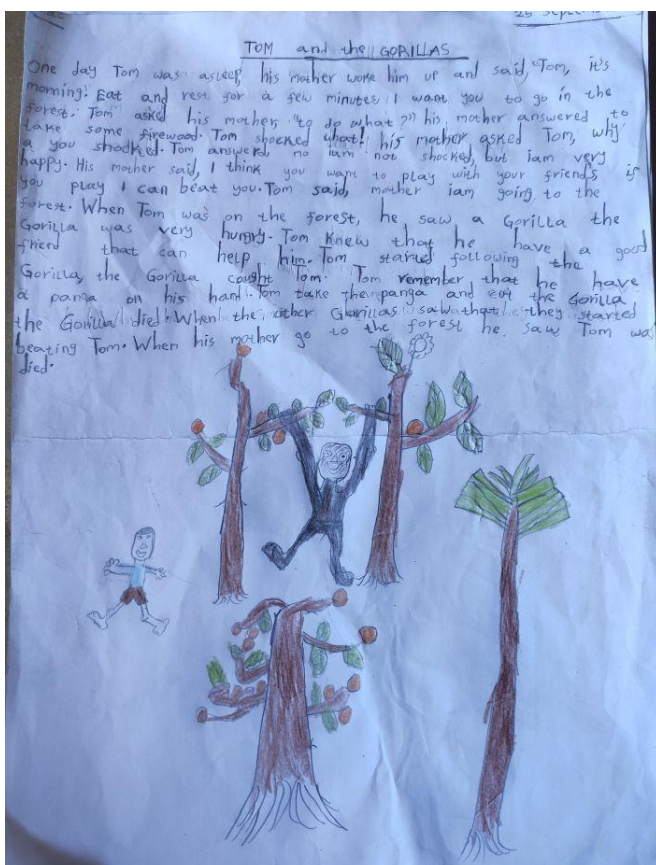 25 Septe
TOM and the GORILLAS
One day Tom was asleep, his mother woke him up and said, "Tom, it's
morning. Eat and rest for a few minutes, I want you to go in the
forest. Tom asked his mother, "to do what?" his mother answered to
take some firewood. Tom shocked what! his mother asked Tom, why
a you shocked. Tom answerd, no iam not shocked, but iam very
happy. His mother said, I think you want to play with your friends, if
you play I can beat you. Tom said, mother iam going to the
forest. When Tom was on the forest, he saw a Gorilla the
Gorilla was very hungry. Tom knew that he have a good
friend that can help him. Tom started following the
Gorilla, the Gorilla caught Tom. Tom remember that he have
a panga on his hand. Tom take the panga and cut the Gorilla
the Gorilla died. When the other Gorillas saw that they started
beating Tom. When his mother go to the forest he saw Tom was
died.